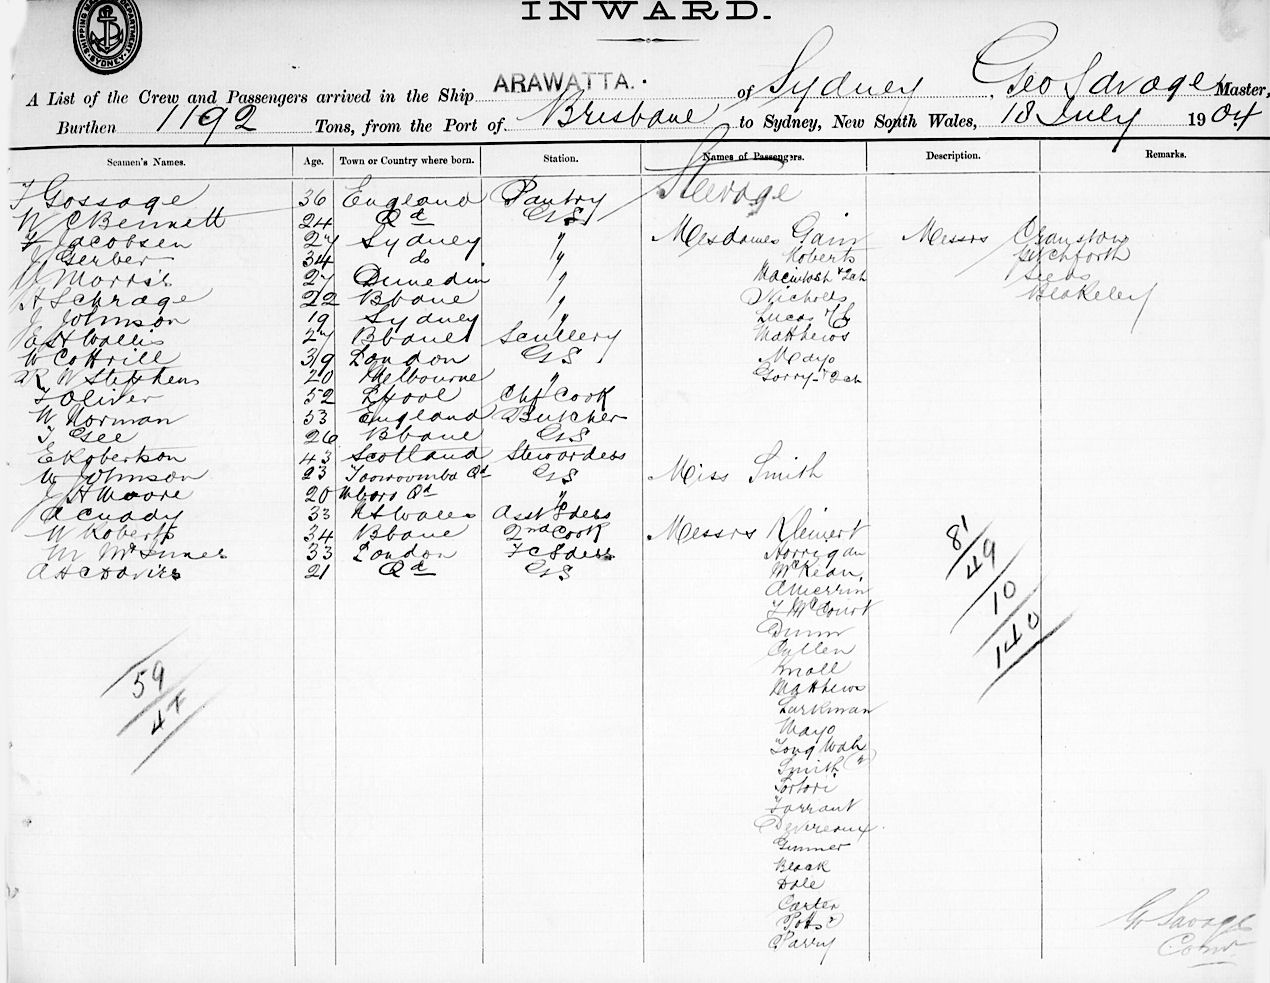 INWARD.
SHIPPING MASTER'S DEPARTMENT SYDNEY
A List of the Crew and Passengers arrived in the Ship ARAWATTA. of Sydney, Geo Savage Master,
Burthen 1192 Tons, from the Port of Brisbane to Sydney, New South Wales, 18 July 1904
Seamen's Names. Age. Town or Country where born. Station. Names of Passengers. Description. Remarks.
Steerage
F Gossage 36 England Pantry
W C Bennett 24 Qd GS
Jacobsen 27 Sydney "
J Gerber 34 do "
W Morris 27 Dunedin "
A Schrage 22 Bbane "
J Johnson 19 Sydney "
E H Wallis 27 Bbane Scullery
W Cottrill 39 London GS
R W Stephens 20 Melbourne "
J Oliver 52 L'pool Chf Cook
W Norman 53 England Butcher
T Gee 26 Bbane GS
E Robertson 43 Scotland Stewardess
W Johnson 23 Toowoomba Qd GS
J H Moore 20 Mboro Qd "
A Cuady 33 NSWales Asst
W Roberts 34 Bbane 2nd Cook
M McInnes 33 London
A H C Davies 21 Qd GS
Mesdames Gain Messrs Cranston
Roberts Pitchforth
Macintosh & 2ch
Nicholls Blakeley
Lucas
Matthews
Mayo
Gorry & 2ch
Miss Smith
Messrs Kleinert
Horrigan
McKean
J McCourt
Dunn
Cullen
Matthews
Larkman
Mayo
Tong Wah
Smith
Tortori
Farrant
Devereaux
Gunner
Black
Dale
Carter
Potts
Parry
81
49
10
140
59
47
Geo Savage